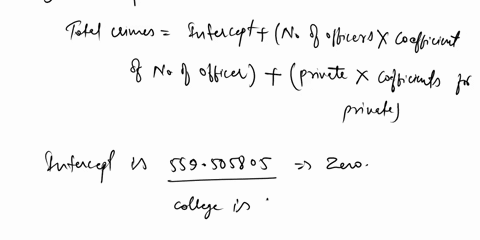 Total crimes = Intercept + (No of officers X coefficient
of No of officer) + (private X cofficients for
private)
Intercept is 559.505805 => Zero.
college is .